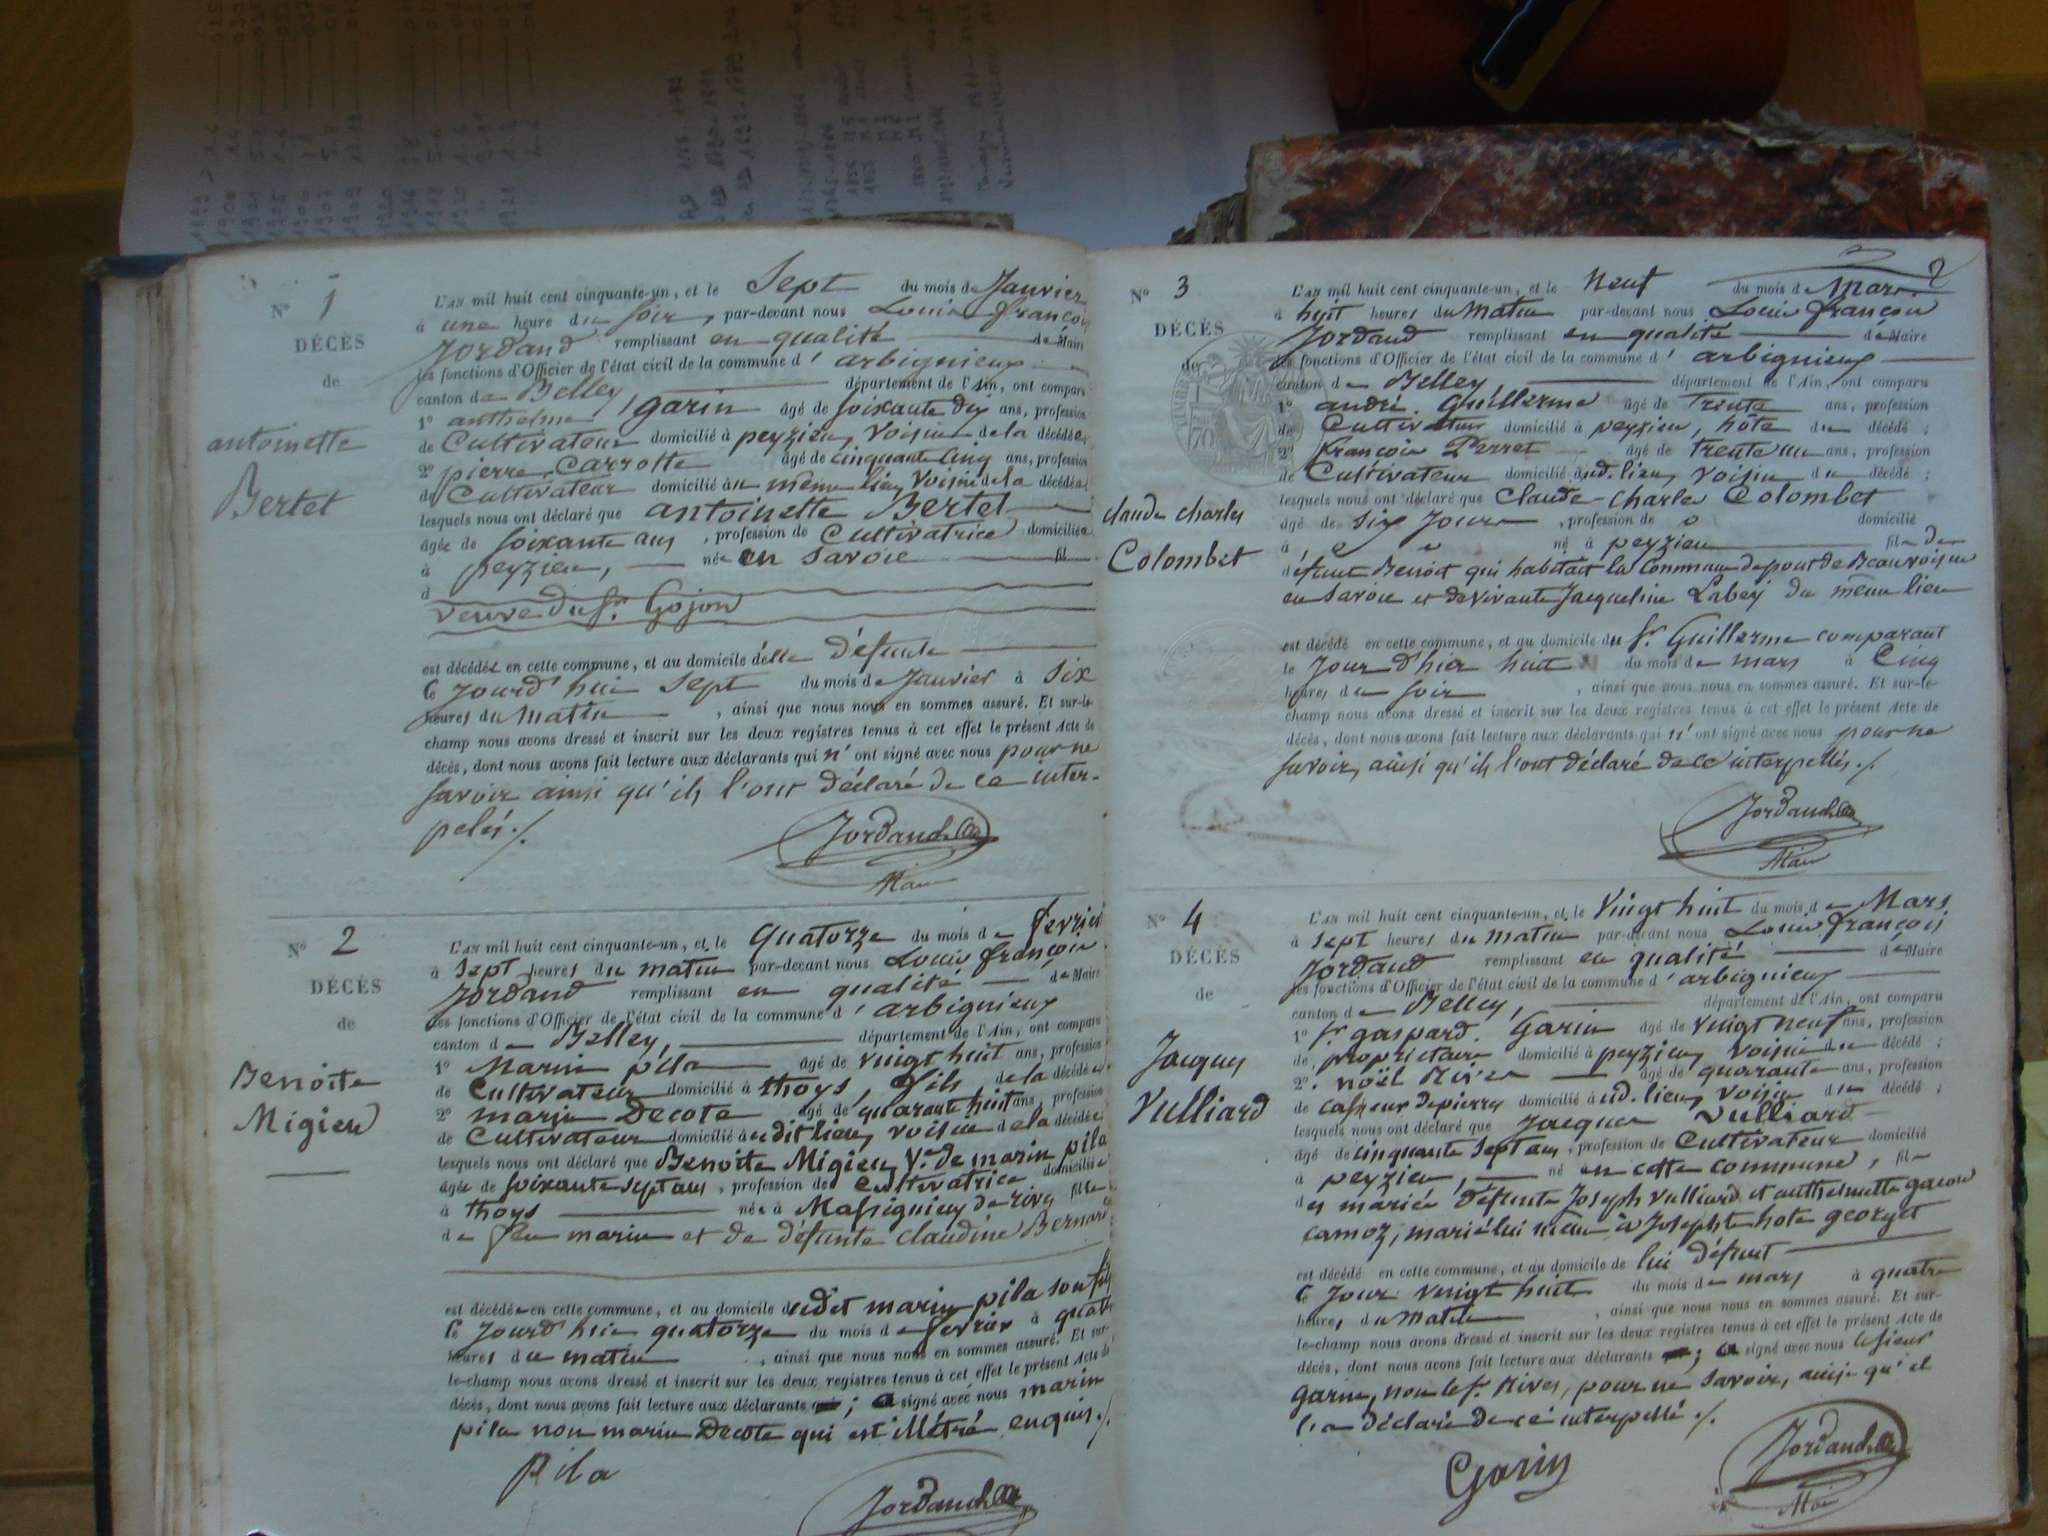 N° 1
DÉCÈS
de
antoinette
Bertet
L'AN mil huit cent cinquante-un, et le Sept du mois de Janvier
à une heure du soir, par-devant nous Louis françois
Jordand remplissant en qualité de Maire
les fonctions d'Officier de l'état civil de la commune d'arbignieux
canton de Belley département de l'Ain, ont comparu
1° anthelme garin âgé de soixante dix ans, profession
de Cultivateur domicilié à peyzieu, voisin de la décédée,
2° pierre Carrotte âgé de cinquante cinq ans, profession
de Cultivateur domicilié au même lieu voisin de la décédée
lesquels nous ont déclaré que antoinette Bertet
âgée de soixante ans, profession de Cultivatrice domiciliée
à peyzieu, née en Savoie fil
d
veuve du Sr. Gojon
est décédée en cette commune, et au domicile d'elle défunte
le Jourd'hui Sept du mois de Janvier à six
heures du matin, ainsi que nous nous en sommes assuré. Et sur-le-
champ nous avons dressé et inscrit sur les deux registres tenus à cet effet le présent Acte de
décès, dont nous avons fait lecture aux déclarants qui n'ont signé avec nous pour ne
savoir ainsi qu'ils l'ont déclaré de ce inter-
pelés ./.
Jordand
Maire
N° 2
DÉCÈS
de
Benoite
Migieu
L'AN mil huit cent cinquante-un, et le quatorze du mois de fevrier
à sept heures du matin par-devant nous Louis françois
Jordand remplissant en qualité de Maire
les fonctions d'Officier de l'état civil de la commune d'arbignieux
canton de Belley, département de l'Ain, ont comparu
1° Marin pila âgé de vingt huit ans, profession
de Cultivateur domicilié à thoys, fils de la décédée
2° marin Decote âgé de quarante huit ans, profession
de Cultivateur domicilié au dit lieu, voisin de la décédée
lesquels nous ont déclaré que Benoite Migieu Ve. de marin pila
âgée de soixante sept ans, profession de Cultivatrice domiciliée
à thoys née à Massignieu de rives fille
de feu marin et de défunte Claudine Bernard
est décédée en cette commune, et au domicile dudit marin pila son fils
le Jourd'hui quatorze du mois de fevrier à quatre
heures du matin, ainsi que nous nous en sommes assuré. Et sur-
le-champ nous avons dressé et inscrit sur les deux registres tenus à cet effet le présent Acte de
décès, dont nous avons fait lecture aux déclarants ; a signé avec nous marin
pila non marin Decote qui est illétré enquis ./.
Pila
Jordand
2
N° 3
DÉCÈS
de
Claude Charles
Colombet
L'AN mil huit cent cinquante-un, et le neuf du mois de Mars
à huit heures du Matin par-devant nous Louis françois
Jordand remplissant en qualité de Maire
les fonctions d'Officier de l'état civil de la commune d'arbignieux
canton de Belley, département de l'Ain, ont comparu
1° andré Guillerme âgé de Trente ans, profession
de Cultivateur domicilié à peyzieu, hôte du décédé ;
2° françois Perret âgé de trente un ans, profession
de Cultivateur domicilié aud. lieu, voisin du décédé ;
lesquels nous ont déclaré que Claude-Charles Colombet
âgé de six Jours, profession de o domicilié
à né à peyzieu fils de
défunt Benoit qui habitait la Commune de pont de Beauvoisin
en Savoie et de vivante Jacqueline Labey du même lieu
est décédé en cette commune, et au domicile du Sr. Guillerme comparant
le Jour d'hier huit du mois de mars à Cinq
heures du soir, ainsi que nous nous en sommes assuré. Et sur-le-
champ nous avons dressé et inscrit sur les deux registres tenus à cet effet le présent Acte de
décès, dont nous avons fait lecture aux déclarants qui n'ont signé avec nous pour ne
savoir, ainsi qu'ils l'ont déclaré de ce interpellés ./.
Jordand
Maire
N° 4
DÉCÈS
de
Jacques
Vulliard
L'AN mil huit cent cinquante-un, et le Vingt huit du mois de Mars
à sept heures du matin par-devant nous Louis françois
Jordand remplissant en qualité de Maire
les fonctions d'Officier de l'état civil de la commune d'arbignieux
canton de Belley, département de l'Ain, ont comparu
1° Sr gaspard. Garin âgé de vingt neuf ans, profession
de proprietaire domicilié à peyzieu, voisin du décédé ;
2° noël Rives âgé de quarante ans, profession
de casseur de pierres domicilié aud. lieu, voisin du décédé ;
lesquels nous ont déclaré que Jacques Vulliard
âgé de cinquante sept ans, profession de Cultivateur domicilié
à peyzieu, né en cette commune, fils
des mariés défunts Joseph Vulliard et anthelmette gacon
camoz, marié lui même à Josephte hote georget
est décédé en cette commune, et au domicile de lui défunt
le Jour vingt huit du mois de mars à quatre
heures du matin, ainsi que nous nous en sommes assuré. Et sur-
le-champ nous avons dressé et inscrit sur les deux registres tenus à cet effet le présent Acte de
décès, dont nous avons fait lecture aux déclarants ; a signé avec nous le sieur
garin, non le Sr. Rives, pour ne savoir, ainsi qu'il
l'a déclaré de ce interpellé ./.
Garin
Jordand